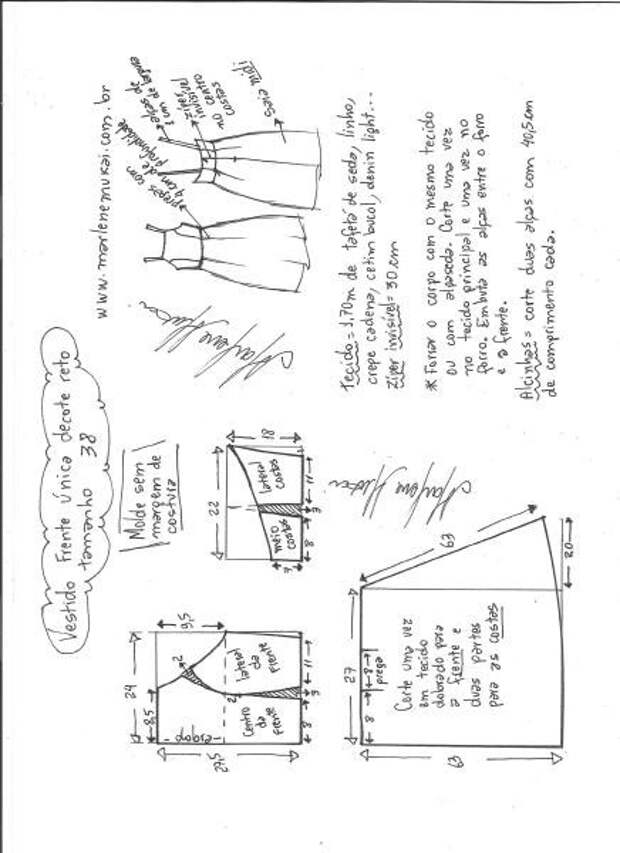 Vestido Frente única decote reto
tamanho 38
www.marlenemukai.com.br
Molde sem
margem de
costura
pregas com
4 cm de
profundidade
alças de
1 cm de largura
zíper
invisível
no centro
costas
saia midi
24
8,5
9,5
27,5
dobra
2
2
Centro
da
Frente
lateral
da
Frente
8
3
11
22
18
7
meio
costas
lateral
costas
8
3
11
Tecido = 1,70m de tafetá de seda, linho,
crepe cadena, cetim bucol, denin light...
Zíper invisível = 30 cm
* Forrar o corpo com o mesmo tecido
ou com algodão. Corte uma vez
no tecido principal e uma vez no
forro. Embuta as alças entre o forro
e a frente.
Alcinhas = corte duas alças com 40,5 cm
de comprimento cada.
27
8
8
prega
63
63
20
Corte uma vez
em tecido
dobrado para
a frente e
duas partes
para as costas